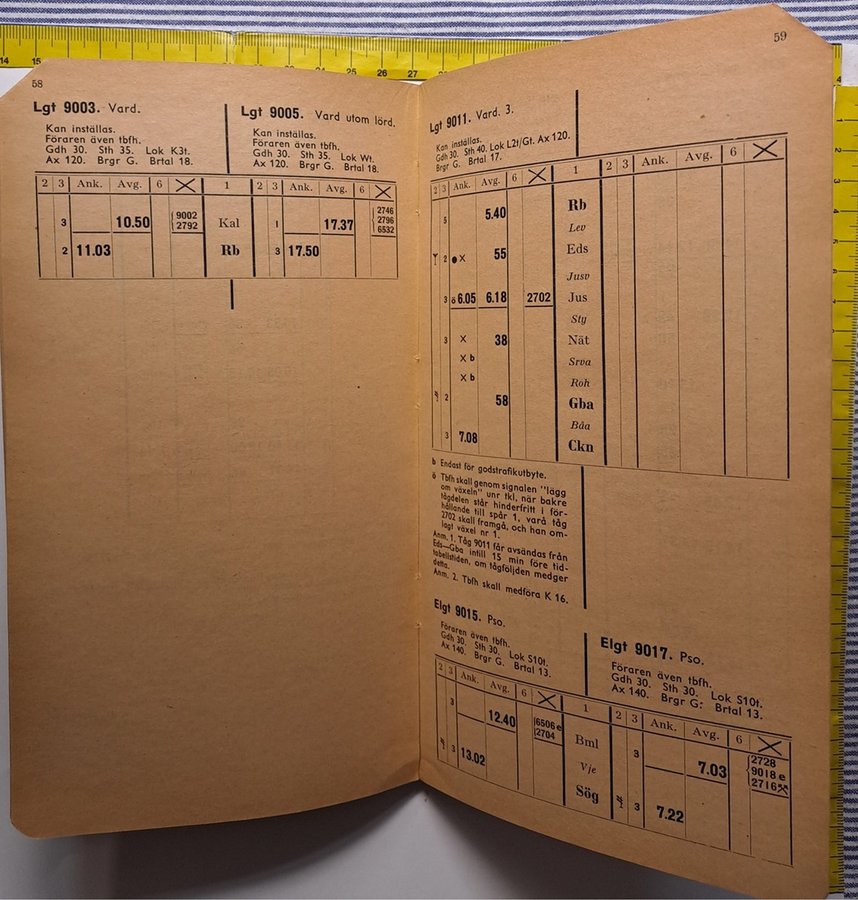 58
Lgt 9003. Vard.
Kan inställas.
Föraren även tbfh.
Gdh 30. Sth 35. Lok K3t.
Ax 120. Brgr G. Brtal 18.
Lgt 9005. Vard utom lörd.
Kan inställas.
Föraren även tbfh.
Gdh 30. Sth 35. Lok Wt.
Ax 120. Brgr G. Brtal 18.
2 3 Ank. Avg. 6 1 2 3 Ank. Avg. 6
3 10.50 9002 2792 Kal 1 17.37 2746 2796 6532
2 11.03 Rb 3 17.50
59
Lgt 9011. Vard. 3.
Kan inställas.
Gdh 30. Sth 40. Lok L2t/Gt. Ax 120.
Brgr G. Brtal 17.
2 3 Ank. Avg. 6 1 2 3 Ank. Avg. 6
5 5.40 Rb
Lev
2 ● X 55 Eds
Jusv
3 ö 6.05 6.18 2702 Jus
Sty
3 X 38 Nät
X b Srva
X b Roh
2 58 Gba
Båa
3 7.08 Ckn
b Endast för godstrafikutbyte.
ö Tbfh skall genom signalen "lägg
om växeln" unr tkl, när bakre
tågdelen står hinderfritt i för-
hållande till spår 1, varå tåg
2702 skall framgå, och han om-
lagt växel nr 1.
Anm. 1. Tåg 9011 får avsändas från
Eds—Gba intill 15 min före tid-
tabellstiden, om tågföljden medger
detta.
Anm. 2. Tbfh skall medföra K 16.
Elgt 9015. Pso.
Föraren även tbfh.
Gdh 30. Sth 30. Lok S10t.
Ax 140. Brgr G. Brtal 13.
Elgt 9017. Pso.
Föraren även tbfh.
Gdh 30. Sth 30. Lok S10t.
Ax 140. Brgr G. Brtal 13.
2 3 Ank. Avg. 6 1 2 3 Ank. Avg. 6
3 12.40 6506 e 2704 Bml 3 7.03 2728 9018 e 2716
Vje
3 13.02 Sög 3 7.22